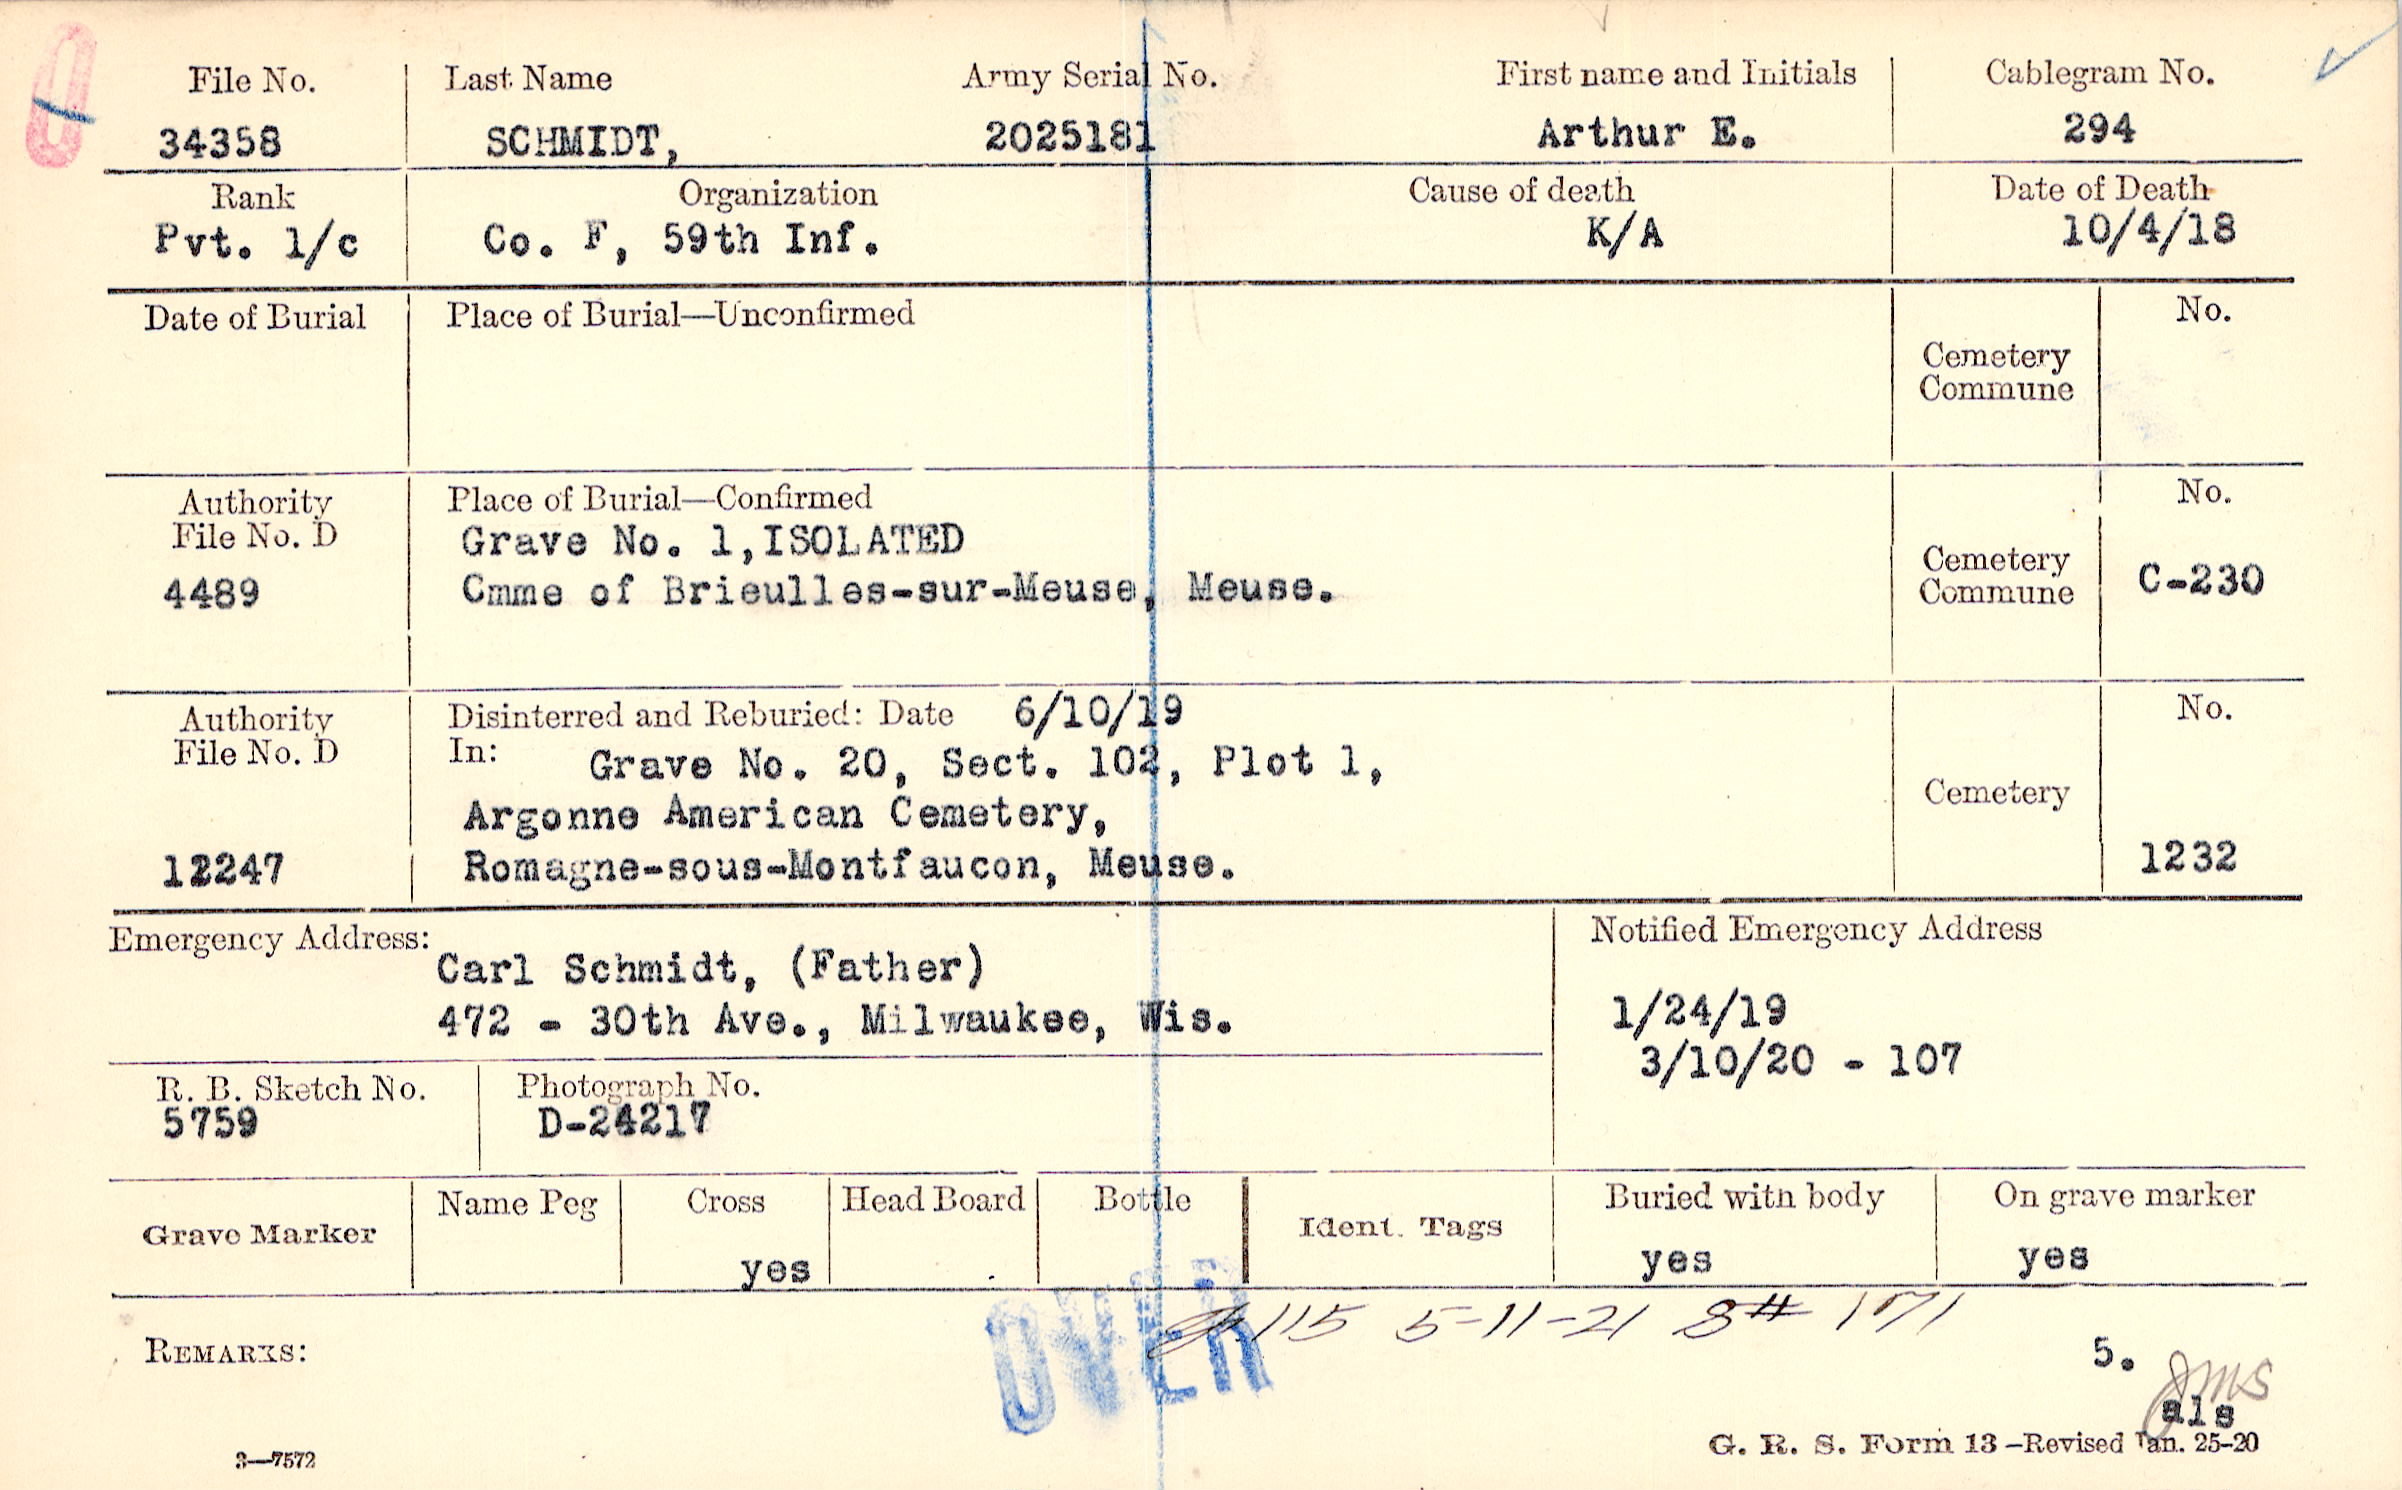 File No. Last Name Army Serial No. First name and Initials Cablegram No.
34358 SCHMIDT, 2025181 Arthur E. 294
Rank Organization Cause of death Date of Death
Pvt. 1/c Co. F, 59th Inf. K/A 10/4/18
Date of Burial Place of Burial—Unconfirmed No.
Cemetery
Commune
Authority Place of Burial—Confirmed No.
File No. D Grave No. 1,ISOLATED
4489 Cmme of Brieulles-sur-Meuse, Meuse. Cemetery
Commune C-230
Authority Disinterred and Reburied: Date 6/10/19 No.
File No. D In: Grave No. 20, Sect. 102, Plot 1,
Argonne American Cemetery, Cemetery
12247 Romagne-sous-Montfaucon, Meuse. 1232
Emergency Address: Notified Emergency Address
Carl Schmidt, (Father)
472 - 30th Ave., Milwaukee, Wis. 1/24/19
3/10/20 - 107
R. B. Sketch No. Photograph No.
5759 D-24217
Grave Marker Name Peg Cross Head Board Bottle Ident. Tags Buried with body On grave marker
yes yes yes
OVER
115 5-11-21 8# 171
REMARKS: 5.
JMS
als
3—7572 G. R. S. Form 13—Revised Jan. 25-20